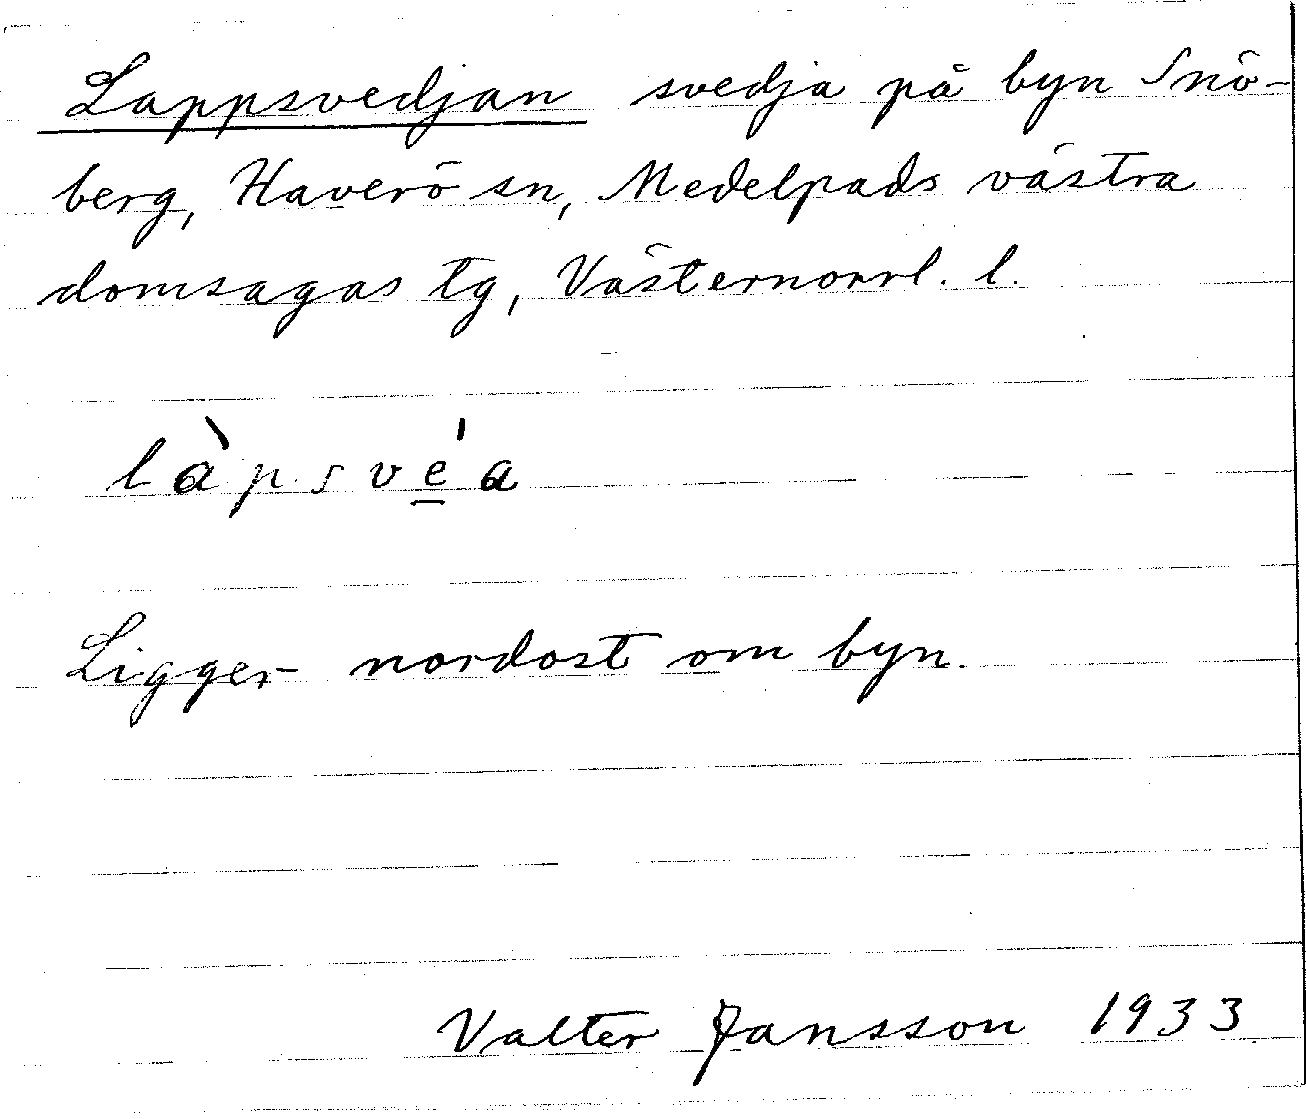 Lappsvedjan svedja på byn Snö-
berg, Haverö sn, Medelpads västra
domsagas tg, Västernorrl. l.
là̀psvé̠a
Ligger nordost om byn.
Valter Jansson 1933